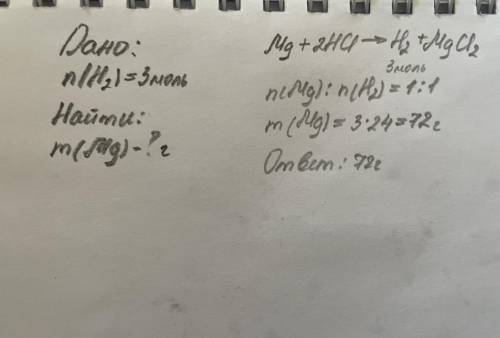 Дано:
n(H₂)=3моль
Найти:
m(Mg)-? г
Mg+2HCl→H₂+MgCl₂
3моль
n(Mg):n(H₂)=1:1
m(Mg)=3·24=72г
Ответ: 72г